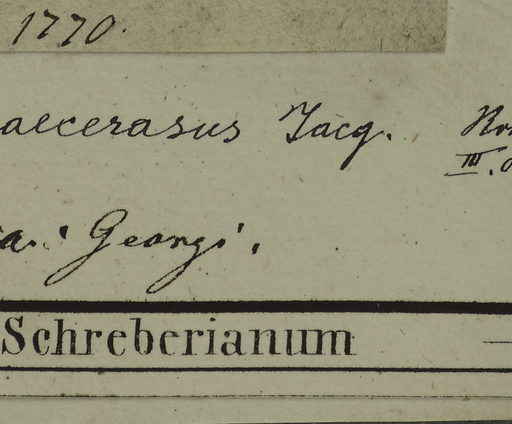 1770.
aecerasus Jacq.
III.
a. Georgi.
Schreberianum